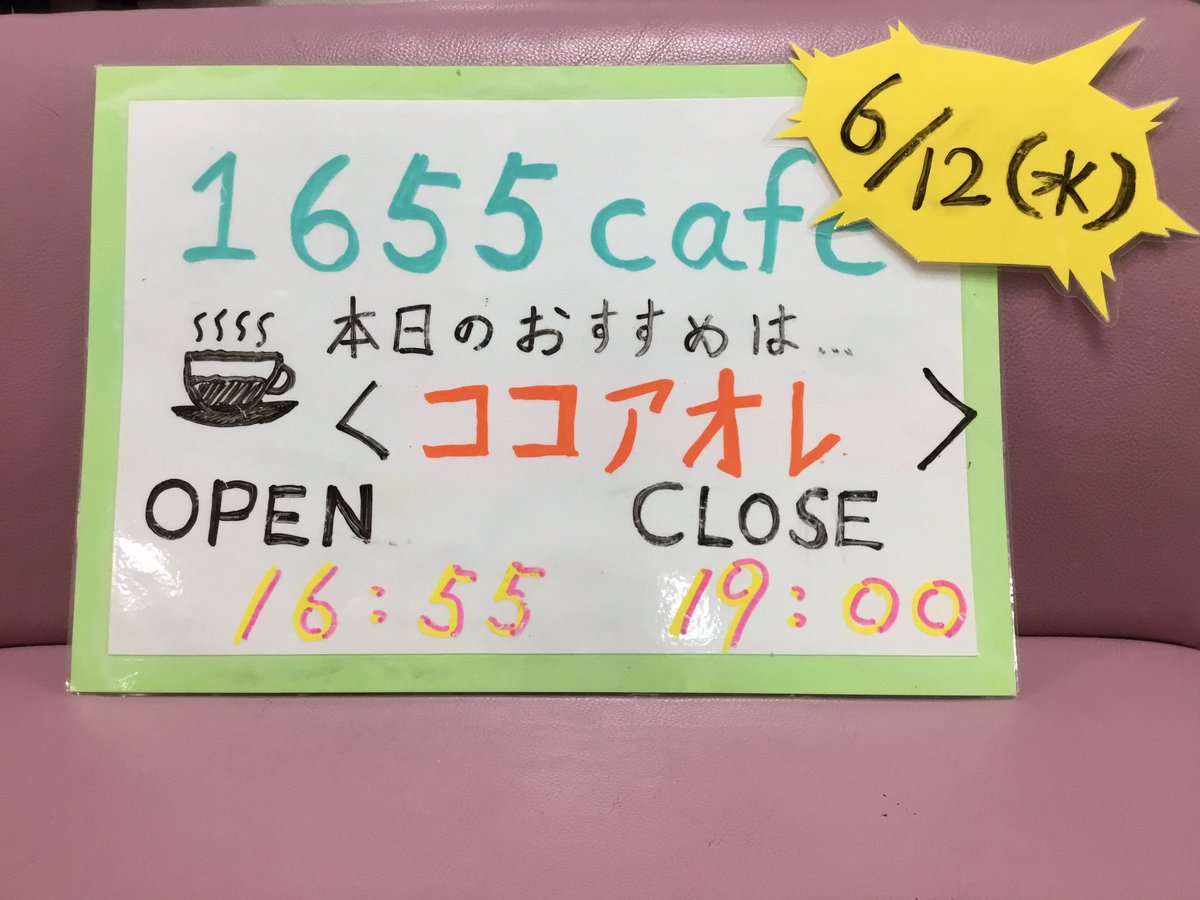 6/12(水)
1655 cafe
本日のおすすめは...
<ココアオレ>
OPEN CLOSE
16:55 19:00